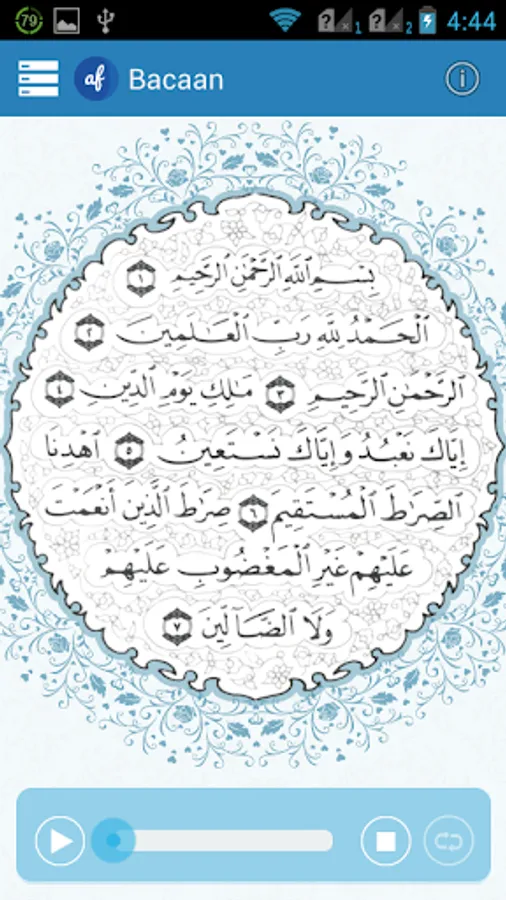 79 1 2 4:44
af Bacaan
بِسْمِ اللَّهِ الرَّحْمَٰنِ الرَّحِيمِ ١
الْحَمْدُ لِلَّهِ رَبِّ الْعَالَمِينَ ٢
الرَّحْمَٰنِ الرَّحِيمِ ٣ مَالِكِ يَوْمِ الدِّينِ ٤
إِيَّاكَ نَعْبُدُ وَإِيَّاكَ نَسْتَعِينُ ٥ اهْدِنَا
الصِّرَاطَ الْمُسْتَقِيمَ ٦ صِرَاطَ الَّذِينَ أَنْعَمْتَ
عَلَيْهِمْ غَيْرِ الْمَغْضُوبِ عَلَيْهِمْ
وَلَا الضَّالِّينَ ٧